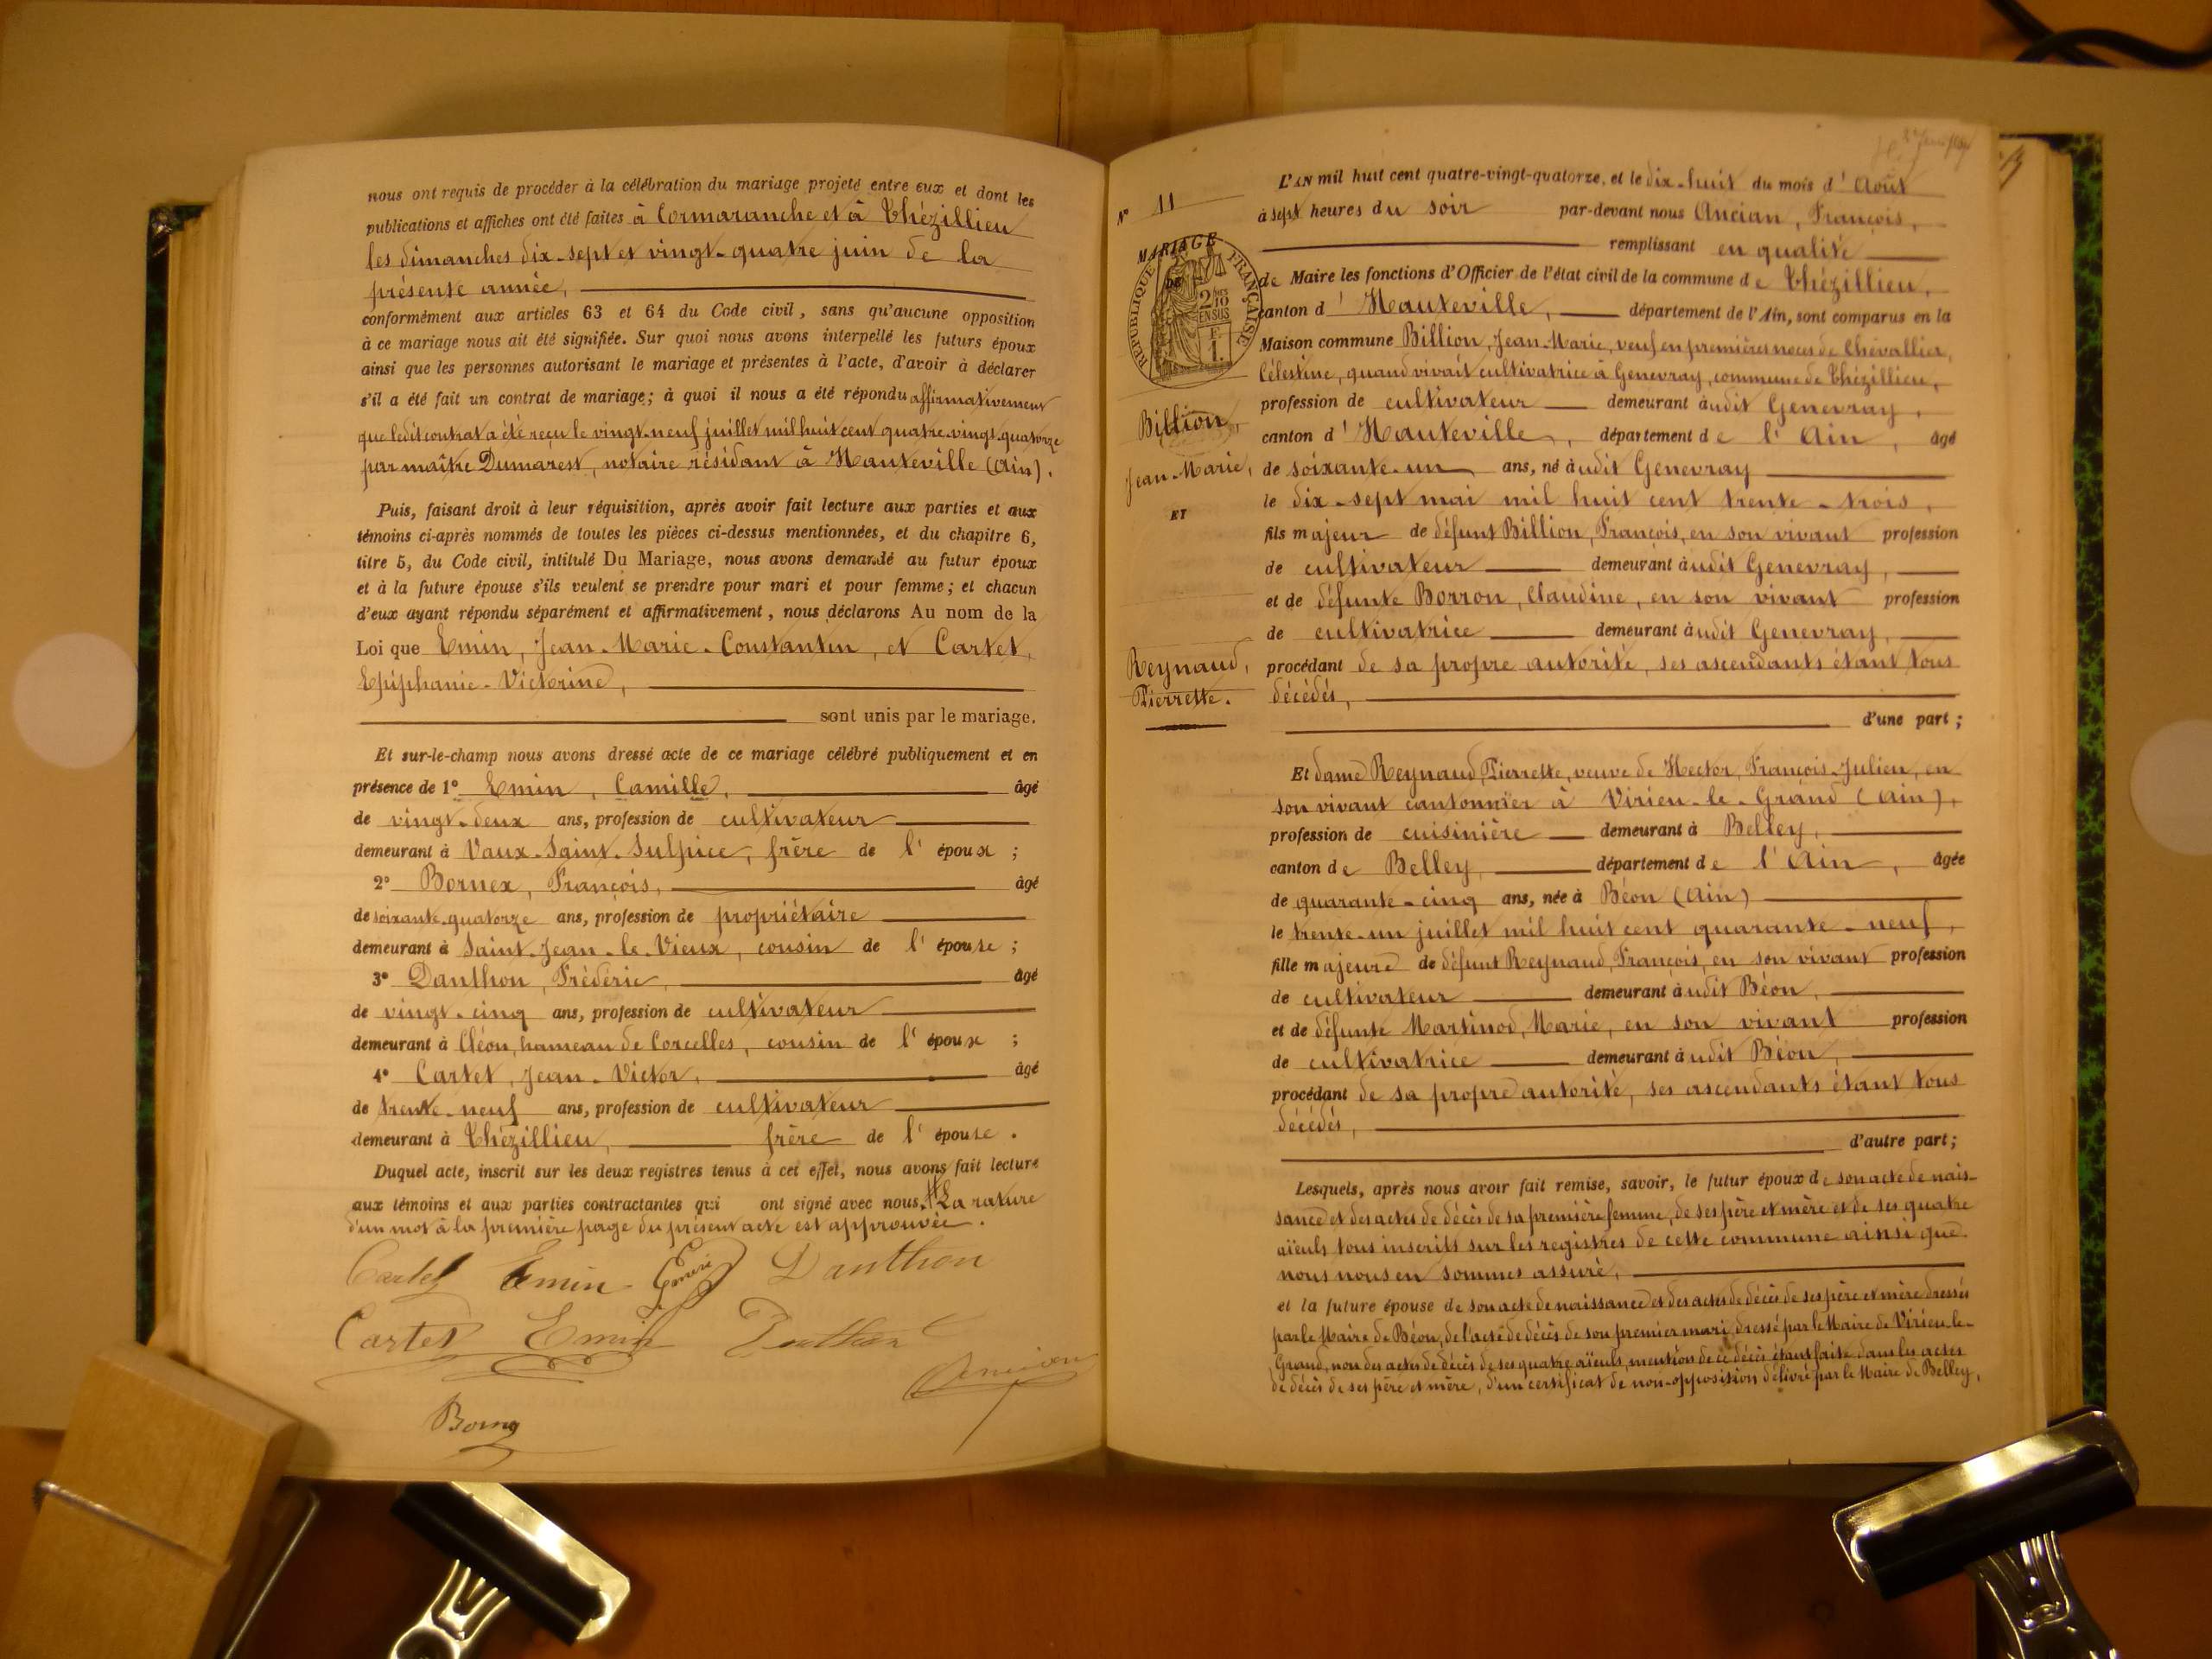 nous ont requis de procéder à la célébration du mariage projeté entre eux et dont les
publications et affiches ont été faites à Cormaranche et à Thézillieu
les dimanches dix-sept et vingt-quatre juin de la
présente année,
conformément aux articles 63 et 64 du Code civil, sans qu'aucune opposition
à ce mariage nous ait été signifiée. Sur quoi nous avons interpellé les futurs époux
ainsi que les personnes autorisant le mariage et présentes à l'acte, d'avoir à déclarer
s'il a été fait un contrat de mariage; à quoi il nous a été répondu affirmativement
que ledit contrat a été reçu le vingt-neuf juillet mil huit cent quatre-vingt-quatorze
par maître Dumarest, notaire résidant à Hauteville (Ain).
Puis, faisant droit à leur réquisition, après avoir fait lecture aux parties et aux
témoins ci-après nommés de toutes les pièces ci-dessus mentionnées, et du chapitre 6,
titre 5, du Code civil, intitulé Du Mariage, nous avons demandé au futur époux
et à la future épouse s'ils veulent se prendre pour mari et pour femme; et chacun
d'eux ayant répondu séparément et affirmativement, nous déclarons Au nom de la
Loi que Emin, Jean-Marie-Constantin, et Cartet,
Epiphanie-Victorine,
sont unis par le mariage.
Et sur-le-champ nous avons dressé acte de ce mariage célébré publiquement et en
présence de 1° Emin, Camille, âgé
de vingt-deux ans, profession de cultivateur
demeurant à Vaux-Saint-Sulpice, frère de l'époux;
2° Bornex, François, âgé
de soixante-quatorze ans, profession de propriétaire
demeurant à Saint-Jean-le-Vieux, cousin de l'épouse;
3° Danthon, Frédéric, âgé
de vingt-cinq ans, profession de cultivateur
demeurant à Cléon, hameau de Corcelles, cousin de l'époux;
4° Cartet, Jean-Victor, âgé
de trente-neuf ans, profession de cultivateur
demeurant à Thézillieu, frère de l'épouse.
Duquel acte, inscrit sur les deux registres tenus à cet effet, nous avons fait lecture
aux témoins et aux parties contractantes qui ont signé avec nous. La rature
d'un mot à la première page du présent acte est approuvée.
Cartet Emin Emin Danthon
Cartet Emin Danthon
Ancian
N° 11
MARIAGE
DE
RÉPUBLIQUE FRANÇAISE
2/10 EN SUS
F
1.
Billion,
Jean-Marie,
ET
Reynaud,
Pierrette.
L'AN mil huit cent quatre-vingt-quatorze, et le dix-huit du mois d'Août
à sept heures du soir par-devant nous Ancian, François,
remplissant en qualité
de Maire les fonctions d'Officier de l'état civil de la commune de Thézillieu,
canton d'Hauteville, département de l'Ain, sont comparus en la
Maison commune Billion, Jean-Marie, veuf en premières noces de Chevallier,
Célestine, quand vivait cultivatrice à Genevray, commune de Thézillieu,
profession de cultivateur demeurant audit Genevray,
canton d'Hauteville, département de l'Ain, âgé
de soixante-un ans, né audit Genevray
le dix-sept mai mil huit cent trente-trois,
fils majeur de défunt Billion, François, en son vivant profession
de cultivateur demeurant audit Genevray,
et de défunte Borron, Claudine, en son vivant profession
de cultivatrice demeurant audit Genevray,
procédant de sa propre autorité, ses ascendants étant tous
décédés,
d'une part;
Et dame Reynaud, Pierrette, veuve de Hector, François-Julien, en
son vivant cantonnier à Virieu-le-Grand (Ain),
profession de cuisinière demeurant à Belley,
canton de Belley, département de l'Ain, âgée
de quarante-cinq ans, née à Béon (Ain)
le trente-un juillet mil huit cent quarante-neuf,
fille majeure de défunt Reynaud, François, en son vivant profession
de cultivateur demeurant audit Béon,
et de défunte Martinod, Marie, en son vivant profession
de cultivatrice demeurant audit Béon,
procédant de sa propre autorité, ses ascendants étant tous
décédés,
d'autre part;
Lesquels, après nous avoir fait remise, savoir, le futur époux de son acte de nais-
sance et des actes de décès de sa première femme, de ses père et mère et de ses quatre
aïeuls tous inscrits sur les registres de cette commune ainsi que
nous nous en sommes assuré,
et la future épouse de son acte de naissance et des actes de décès de ses père et mère dressés
par le Maire de Béon, de l'acte de décès de son premier mari, dressé par le Maire de Virieu-le-
Grand, non des actes de décès de ses quatre aïeuls, mention de ce décès étant faite dans les actes
de décès de ses père et mère, d'un certificat de non-opposition délivré par le Maire de Belley,